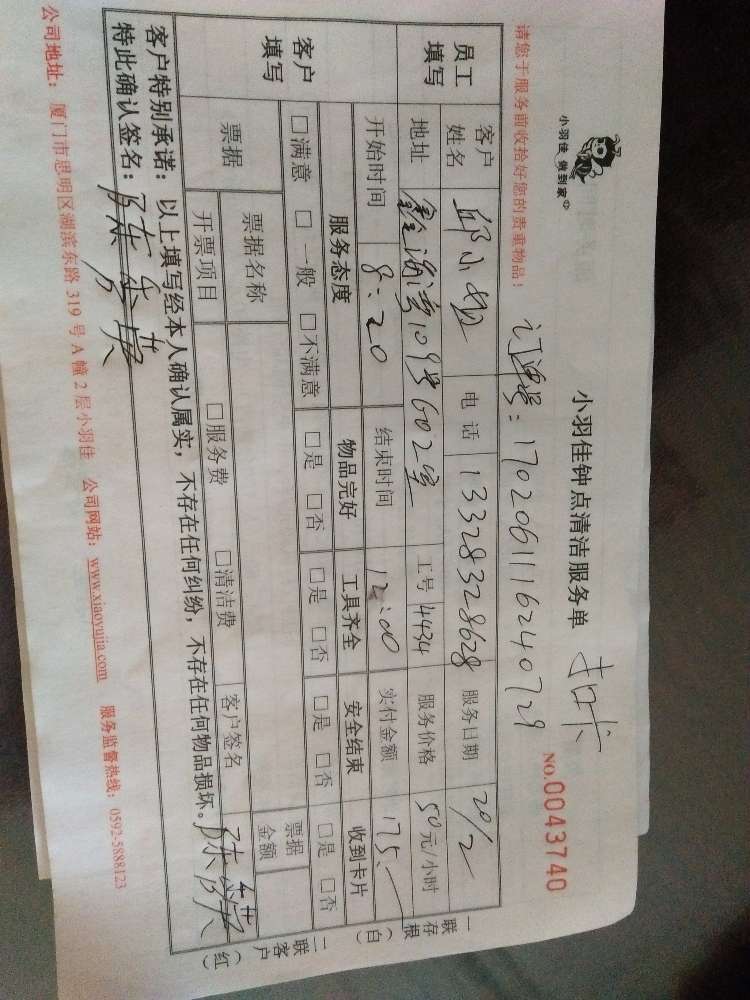 小羽佳 做到家
小羽佳钟点清洁服务单 扣卡
请您于服务前收拾好您的贵重物品!
订单号: 17020611116240729
NO.0043740
员工填写
客户姓名 邱小姐 电话 13328328628 服务日期 20/2
地址 109号602室 工号 4434 服务价格 50元/小时
开始时间 8:20 结束时间 12:00 实付金额 175.—
客户填写
服务态度 物品完好 工具齐全 安全结束 收到卡片
□满意 □一般 □不满意 □是 □否 □是 □否 □是 □否 □是 □否
票据 票据名称 票据金额
开票项目 □服务费 □清洁费 客户签名
客户特别承诺: 以上填写经本人确认属实, 不存在任何纠纷, 不存在任何物品损坏。
特此确认签名:
公司地址: 厦门市思明区湖滨东路 319 号 A 幢 2 层小羽佳 公司网站: www.xiaoyujia.com 服务监督热线: 0592-5888123
一联存根(白)
二联客户(红)